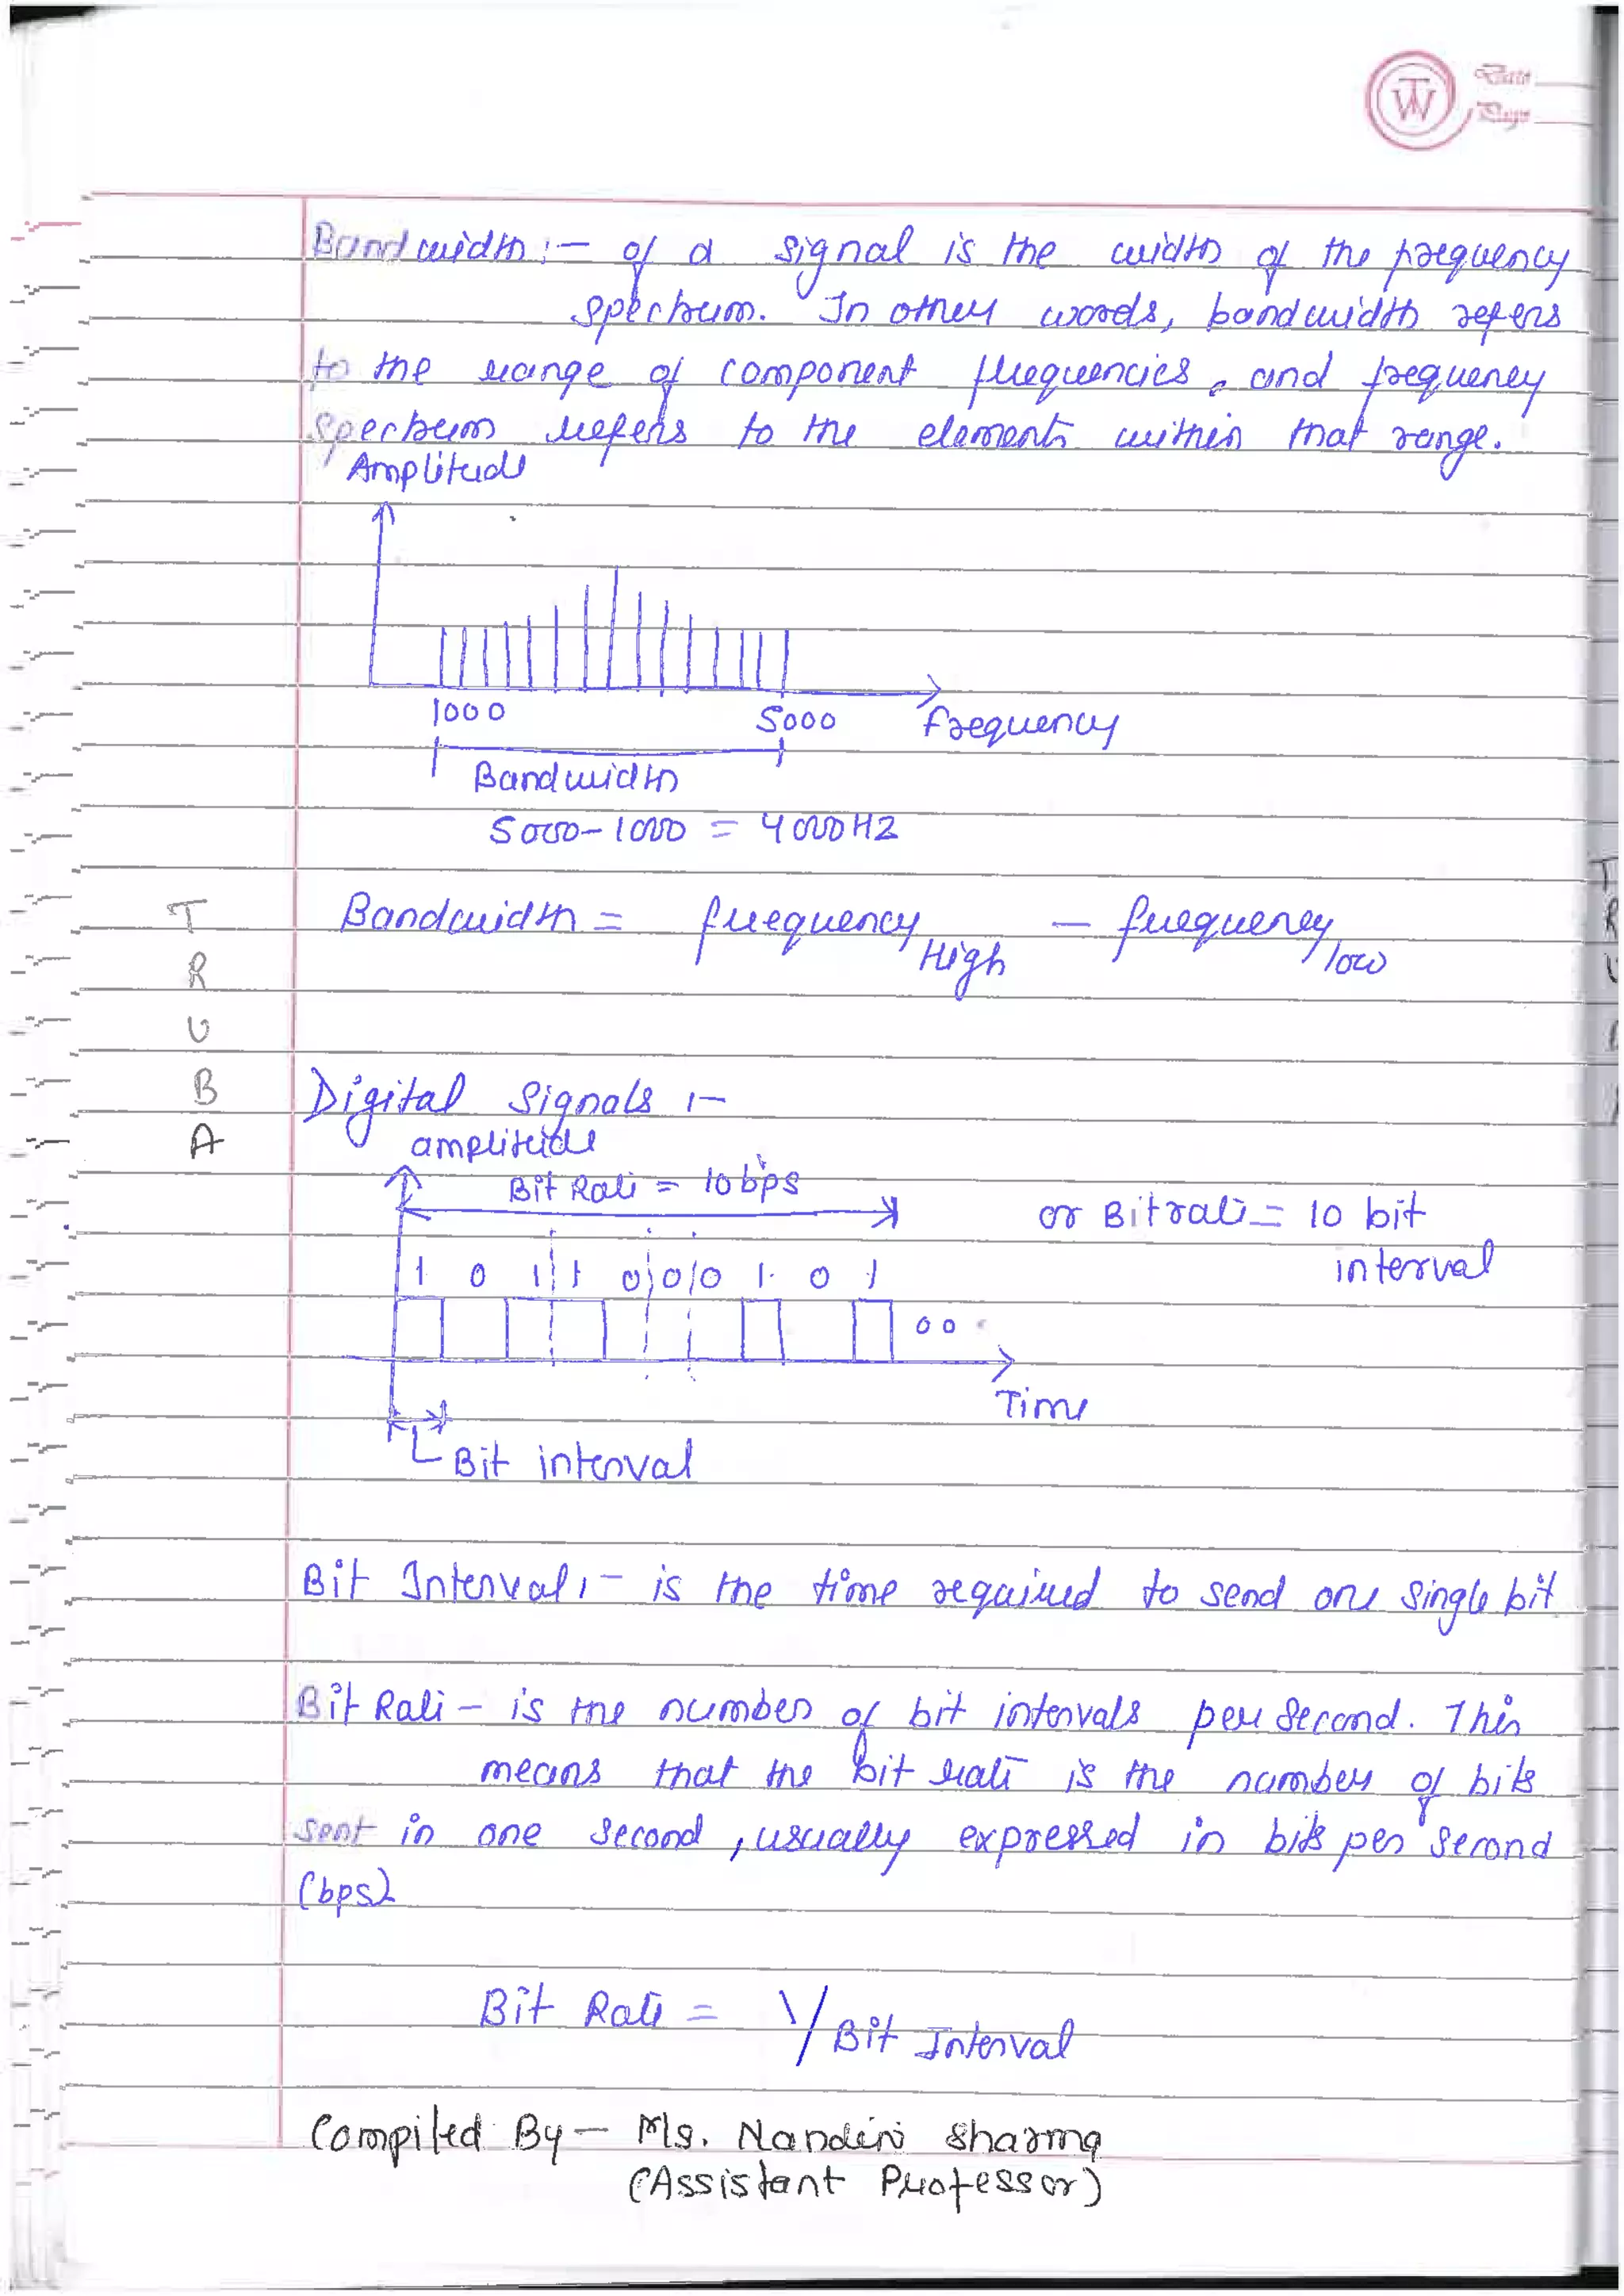 Date
Page
Bandwidth :- of a signal is the width of the frequency
spectrum. In other words, bandwidth refers
to the range of component frequencies, and frequency
spectrum refers to the elements within that range.
Amplitude
1000 5000 frequency
Bandwidth
5000-1000 = 4000 HZ
Bandwidth = frequency High - frequency low
T
R
U
B
A
Digital Signals :-
amplitude
Bit Rate = 10 bps
or Bit rate = 10 bit
interval
1 0 1 1 0 0 0 1 0 1
Time
Bit interval
Bit Interval :- is the time required to send one single bit
Bit Rate - is the number of bit intervals per second. This
means that the bit rate is the number of bits
sent in one second, usually expressed in bits per second
(bps)
Bit Rate = 1/Bit Interval
Compiled By - Ms. Nandini Sharma
(Assistant Professor)